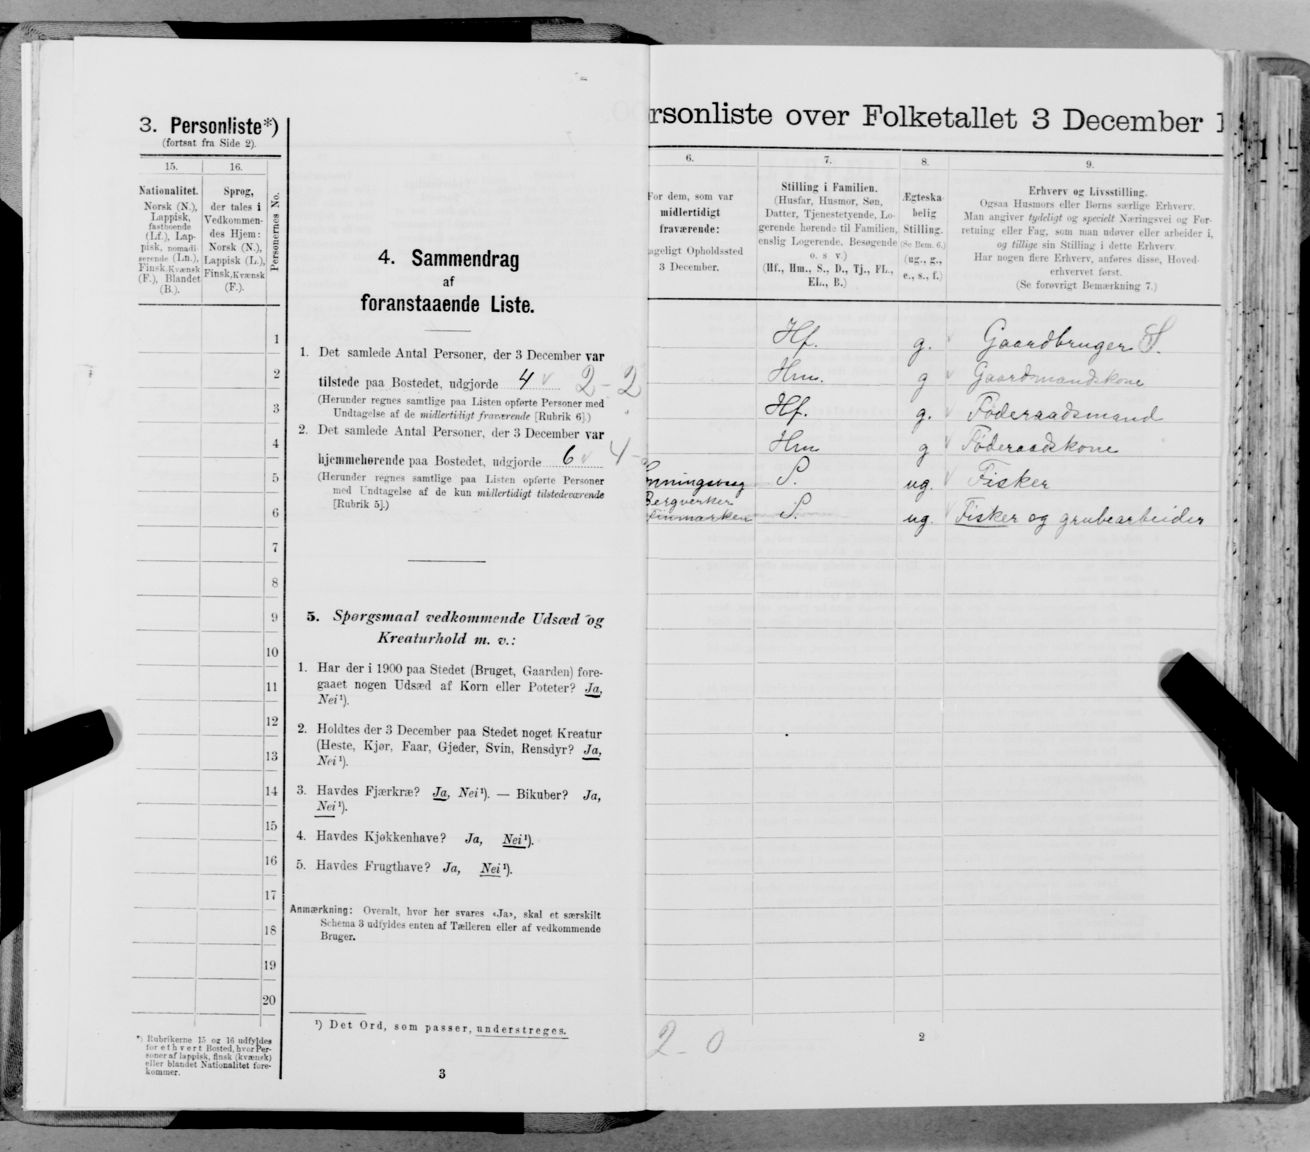 3. Personliste*)
(fortsat fra Side 2).
15.
16.
Personernes No.
Nationalitet.
Norsk (N.),
Lappisk,
fastboende
(Lf.), Lap-
pisk, nomadi-
serende (Ln.),
Finsk, Kvænsk
(F.), Blandet
(B.).
Sprog,
der tales i
Vedkommen-
des Hjem:
Norsk (N.),
Lappisk (L.),
Finsk, Kvænsk
(F.).
1
2
3
4
5
6
7
8
9
10
11
12
13
14
15
16
17
18
19
20
*) Rubrikerne 15 og 16 udfyldes
for ethvert Bosted, hvor Per-
soner af lappisk, finsk (kvænsk)
eller blandet Nationalitet fore-
kommer.
4. Sammendrag
af
foranstaaende Liste.
1. Det samlede Antal Personer, der 3 December var
tilstede paa Bostedet, udgjorde 4 2-2
(Herunder regnes samtlige paa Listen opførte Personer med
Undtagelse af de midlertidigt fraværende [Rubrik 6].)
2. Det samlede Antal Personer, der 3 December var
hjemmehørende paa Bostedet, udgjorde 6 4-
(Herunder regnes samtlige paa Listen opførte Personer
med Undtagelse af de kun midlertidigt tilstedeværende
[Rubrik 5].)
5. Spørgsmaal vedkommende Udsæd og
Kreaturhold m. v.:
1. Har der i 1900 paa Stedet (Bruget, Gaarden) fore-
gaaet nogen Udsæd af Korn eller Poteter? Ja,
Nei ¹).
2. Holdtes der 3 December paa Stedet noget Kreatur
(Heste, Kjør, Faar, Gjeder, Svin, Rensdyr? Ja,
Nei ¹).
3. Havdes Fjærkræ? Ja, Nei ¹). — Bikuber? Ja,
Nei ¹).
4. Havdes Kjøkkenhave? Ja, Nei ¹).
5. Havdes Frugthave? Ja, Nei ¹).
Anmærkning: Overalt, hvor her svares «Ja», skal et særskilt
Schema 3 udfyldes enten af Tælleren eller af vedkommende
Bruger.
¹) Det Ord, som passer, understreges.
3
rsonliste over Folketallet 3 December 1
6.
7.
8.
9.
For dem, som var
midlertidigt
fraværende:
ageligt Opholdssted
3 December.
Stilling i Familien.
(Husfar, Husmor, Søn,
Datter, Tjenestetyende, Lo-
gerende hørende til Familien,
enslig Logerende, Besøgende
o. s v.)
(Hf., Hm., S., D., Tj., FL.,
EL., B.)
Ægteska-
belig
Stilling.
(Se Bem. 6.)
(ug., g.,
e., s., f.)
Erhverv og Livsstilling.
Ogsaa Husmors eller Børns særlige Erhverv.
Man angiver tydeligt og specielt Næringsvei og For-
retning eller Fag, som man udøver eller arbeider i,
og tillige sin Stilling i dette Erhverv.
Har nogen flere Erhverv, anføres disse, Hoved-
erhvervet først.
(Se forøvrigt Bemærkning 7.)
Hf. g. Gaardbruger S.
Hm. g Gaardmandskone
Hf. g. Føderaadsmand
Hm g Føderaadskone
S. ug. Fisker
Bergverker
Finmarken S. ug. Fisker og grubearbeider
2-0
2